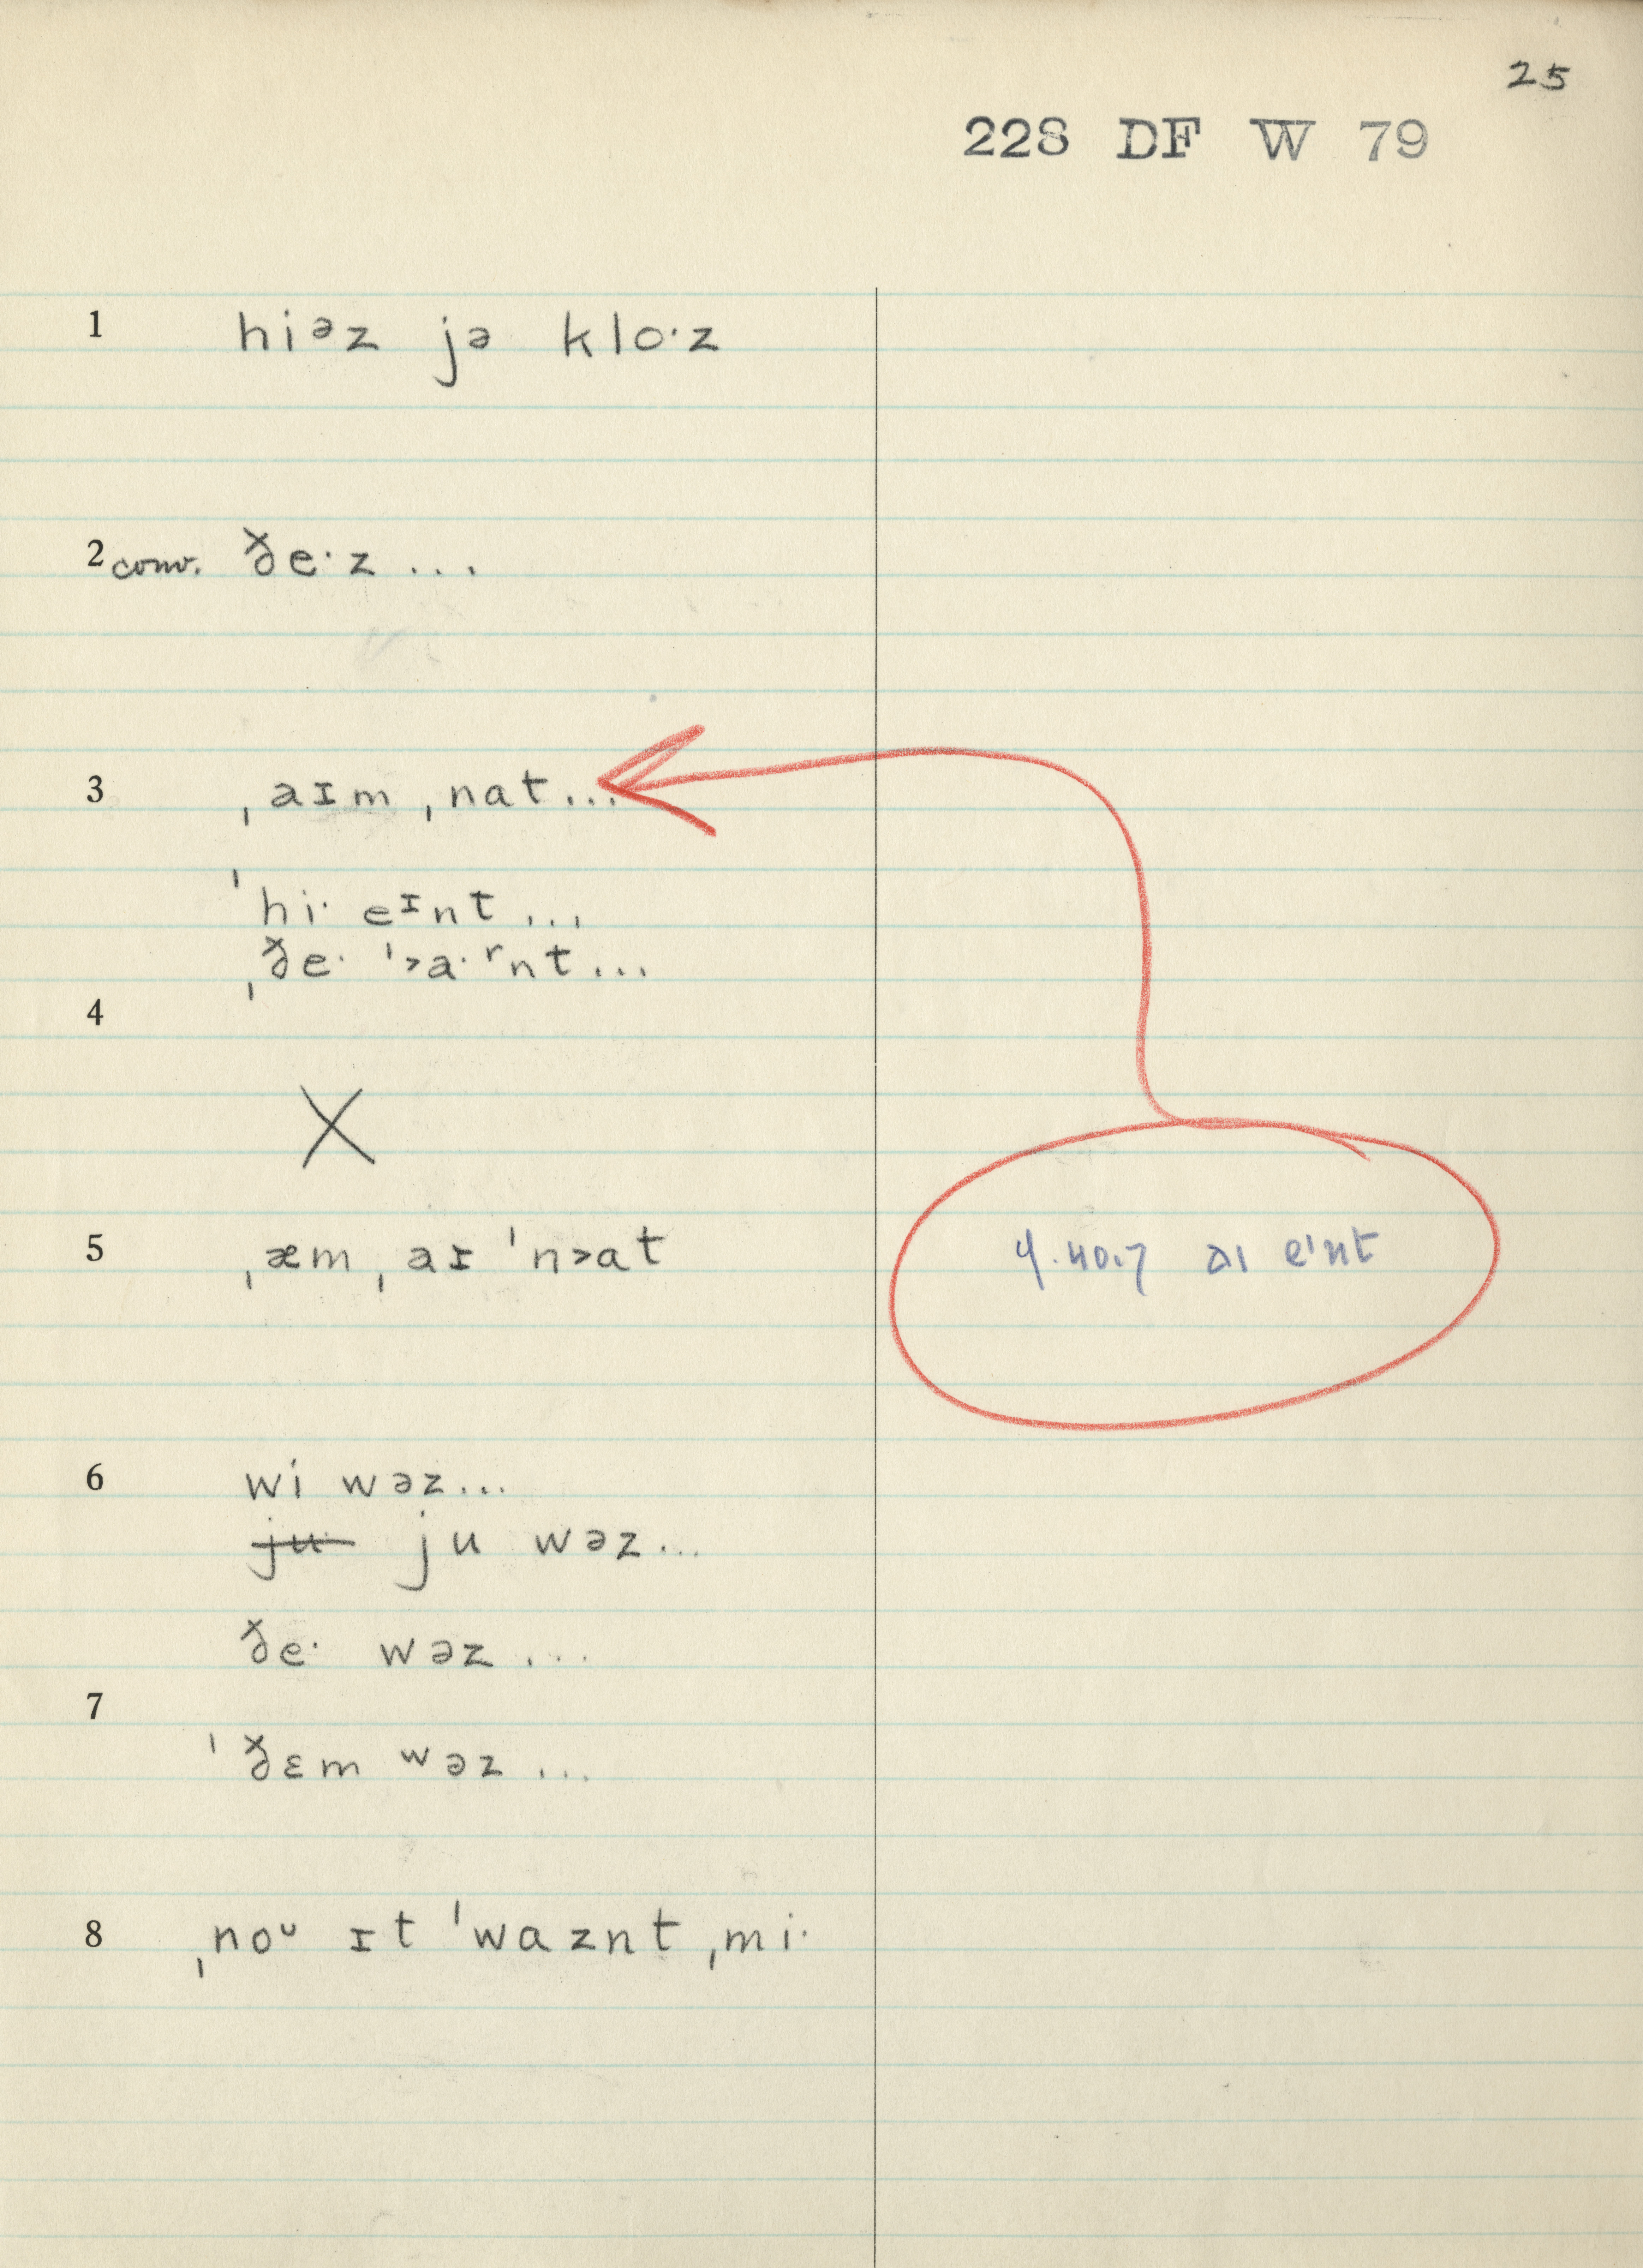 25
228 DF W 79
1 hiᵊz jə klo·z
2 conv. ðe·z ...
3 ˌaɪm ˌnat...
ˈhi· eᶦnt...
ˌðe· ˈ˃a·ʳnt...
4
X
5 ˌæm ˌaɪ ˈn˃at
aɪ eᶦnt
6 wi wəz...
ju ju wəz...
ðe· wəz ...
7
ˈðɛm ʷəz ...
8 ˌnoᵘ ɪt ˈwaznt ˌmi·